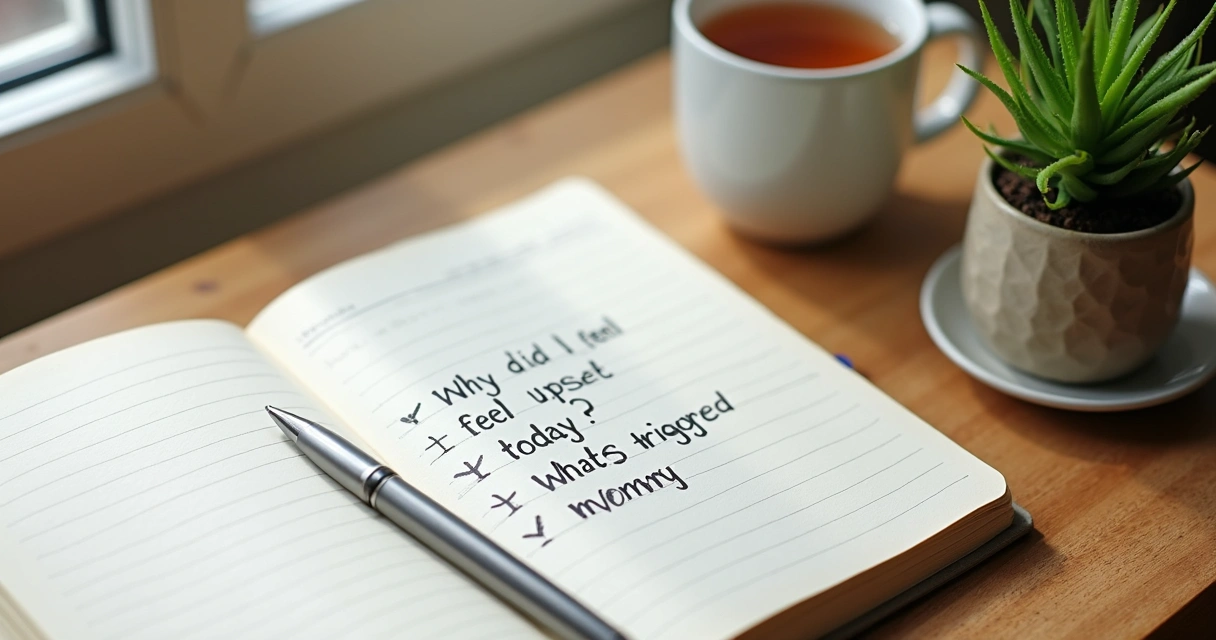 Why did I feel
feel upset
today?
Whats triggred
mvomrry